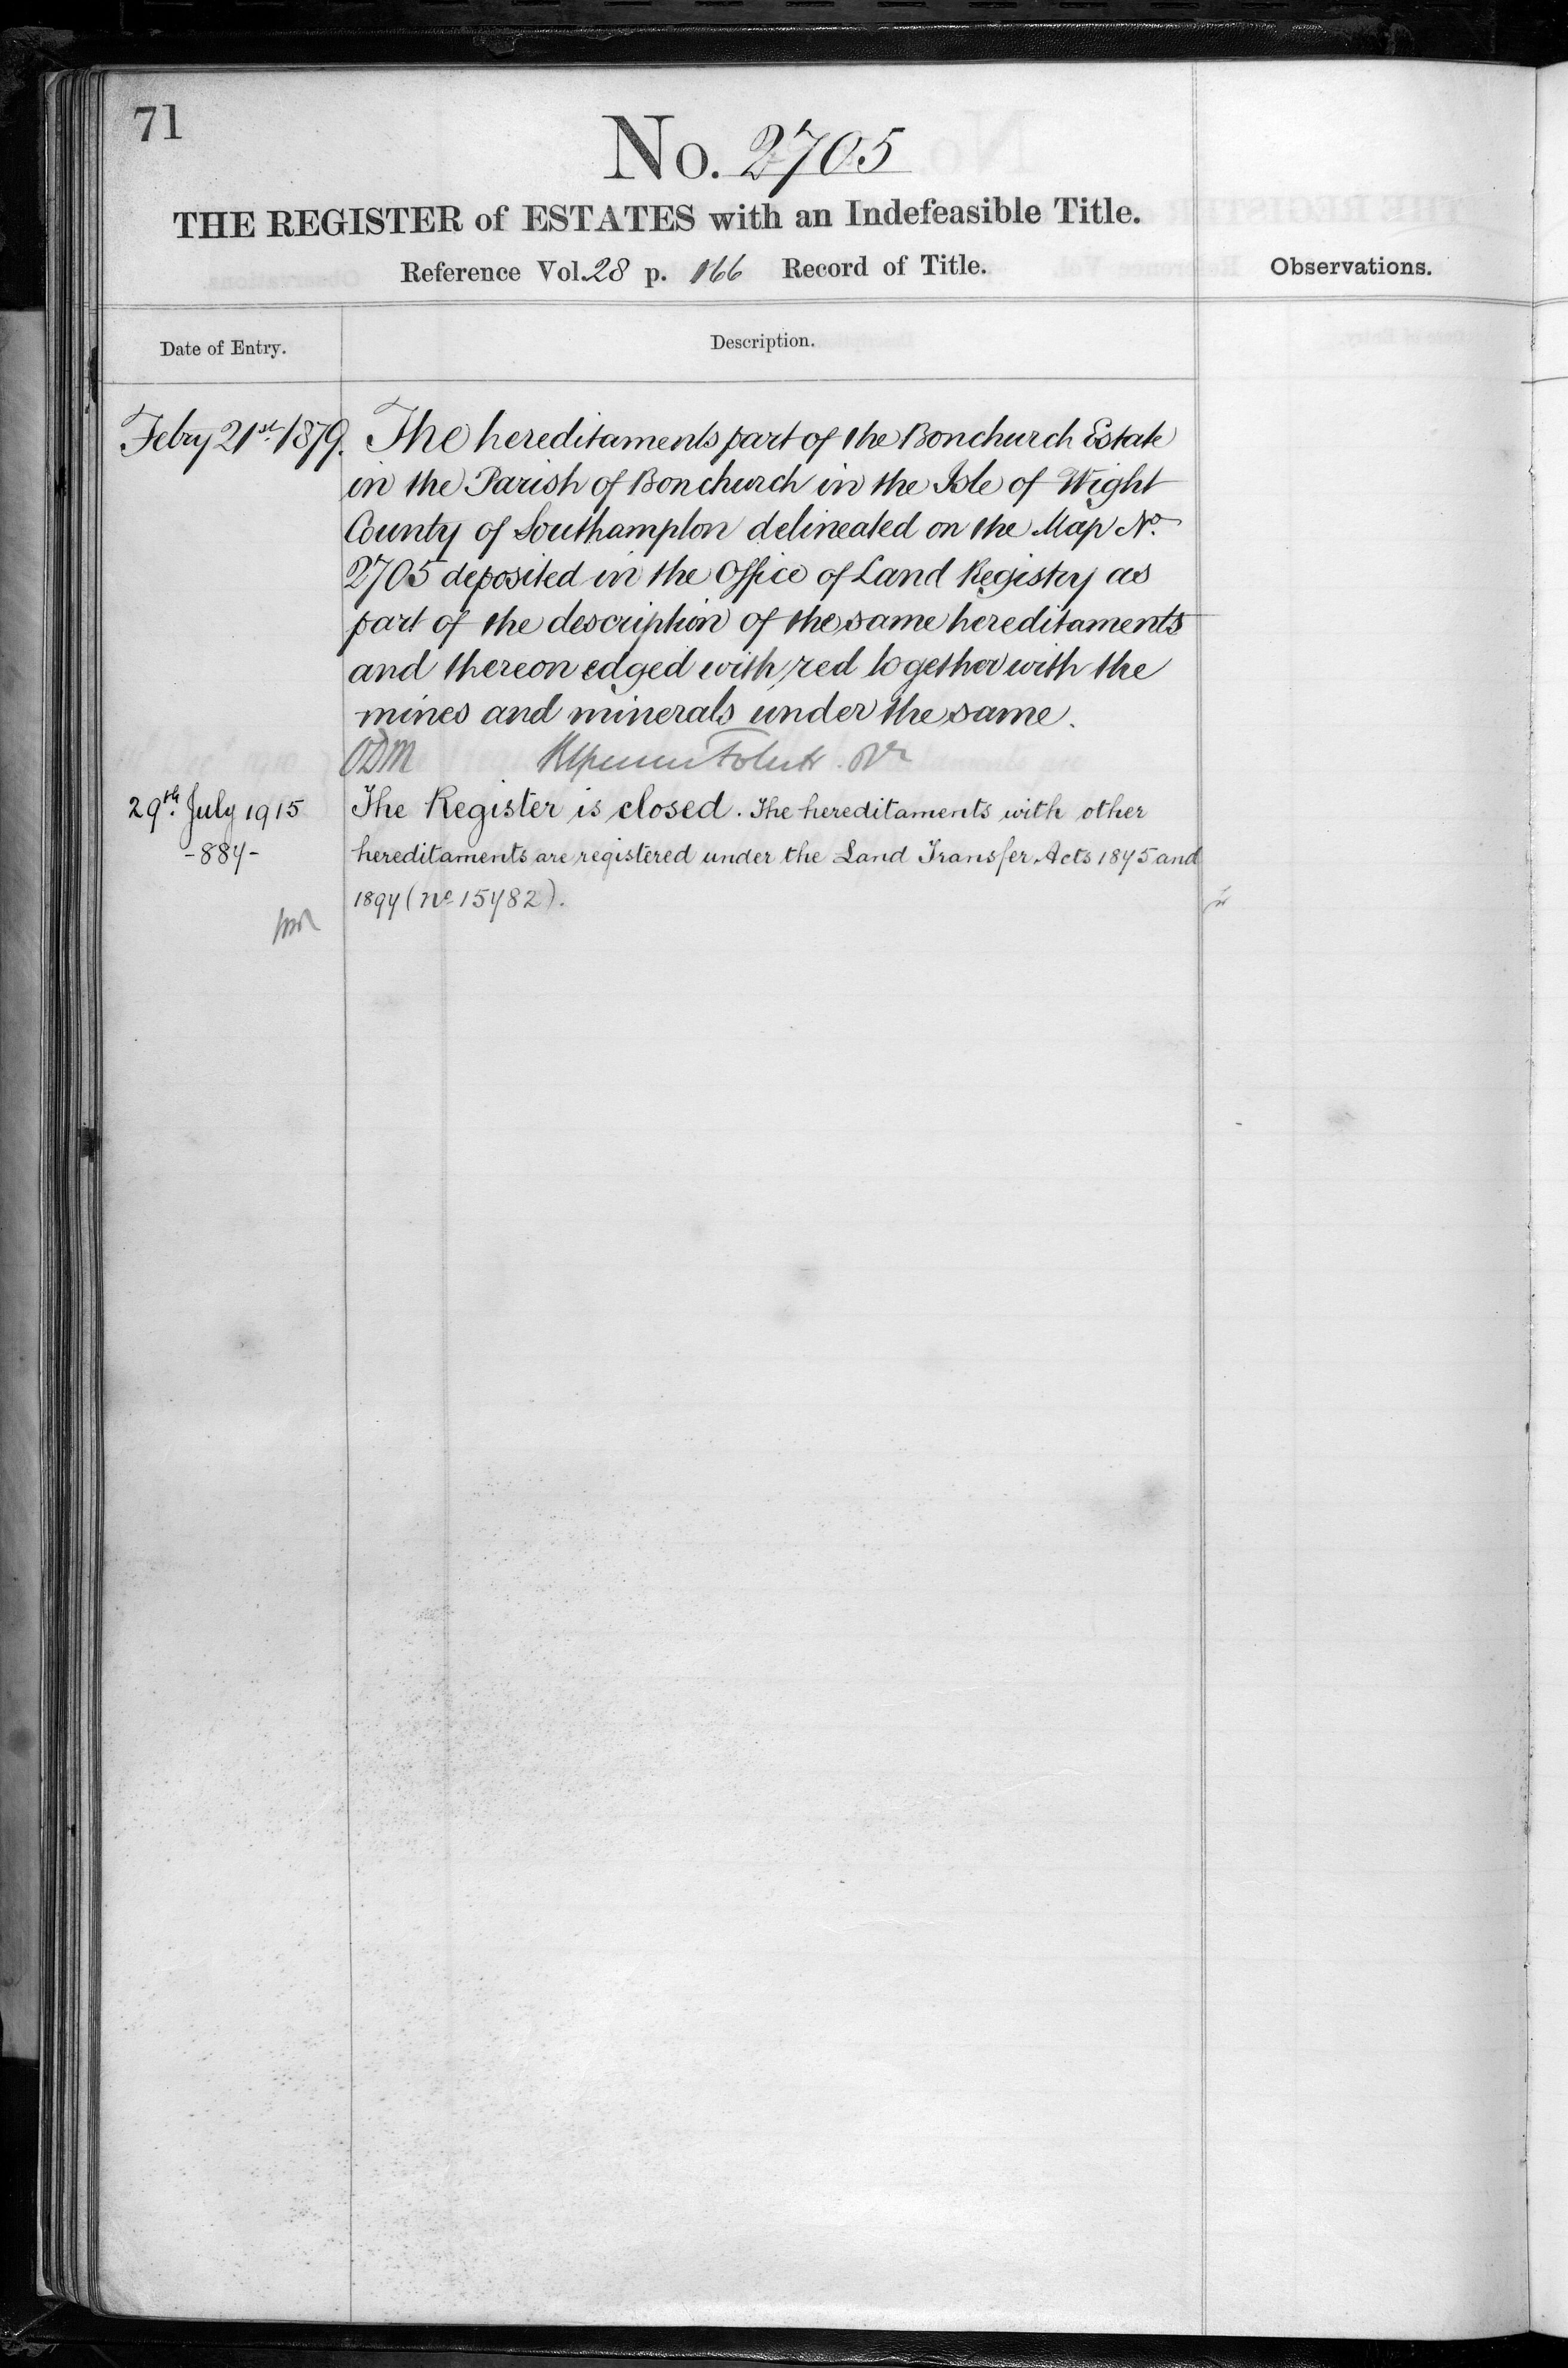 71
No. 2705
THE REGISTER of ESTATES with an Indefeasible Title.
Reference Vol. 28 p. 166 Record of Title.
Observations.
Date of Entry.
Description.
Febry 21st 1879. The hereditaments part of the Bonchurch Estate
in the Parish of Bonchurch in the Isle of Wight
County of Southampton delineated on the Map No.
2705 deposited in the Office of Land Registry as
part of the description of the same hereditaments
and thereon edged with red together with the
mines and minerals under the same.
ODM
29th. July 1915 The Register is closed. The hereditaments with other
-887- hereditaments are registered under the Land Transfer Acts 1875 and
1897 (No 15782).